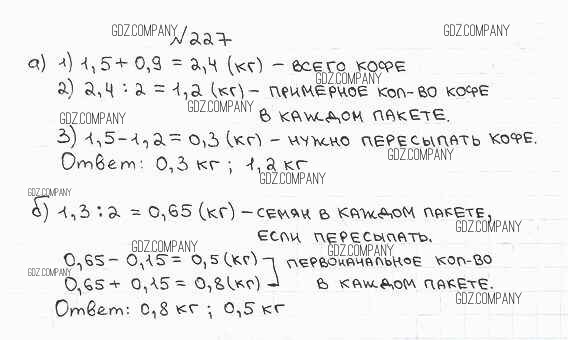 GDZ.COMPANY GDZ.COMPANY
№227
а) 1) 1,5 + 0,9 = 2,4 (кг) – всего кофе
GDZ.COMPANY
2) 2,4 : 2 = 1,2 (кг) – примерное кол-во кофе
GDZ.COMPANY
в каждом пакете.
GDZ.COMPANY
3) 1,5 – 1,2 = 0,3 (кг) – нужно пересыпать кофе.
GDZ.COMPANY
Ответ: 0,3 кг ; 1,2 кг
GDZ.COMPANY
GDZ.COMPANY
б) 1,3 : 2 = 0,65 (кг) – семян в каждом пакете,
GDZ.COMPANY
если пересыпать.
GDZ.COMPANY GDZ.COMPANY
0,65 – 0,15 = 0,5 (кг) первоначальное кол-во
GDZ.COMPANY
0,65 + 0,15 = 0,8 (кг) – в каждом пакете.
GDZ.COMPANY
Ответ: 0,8 кг ; 0,5 кг